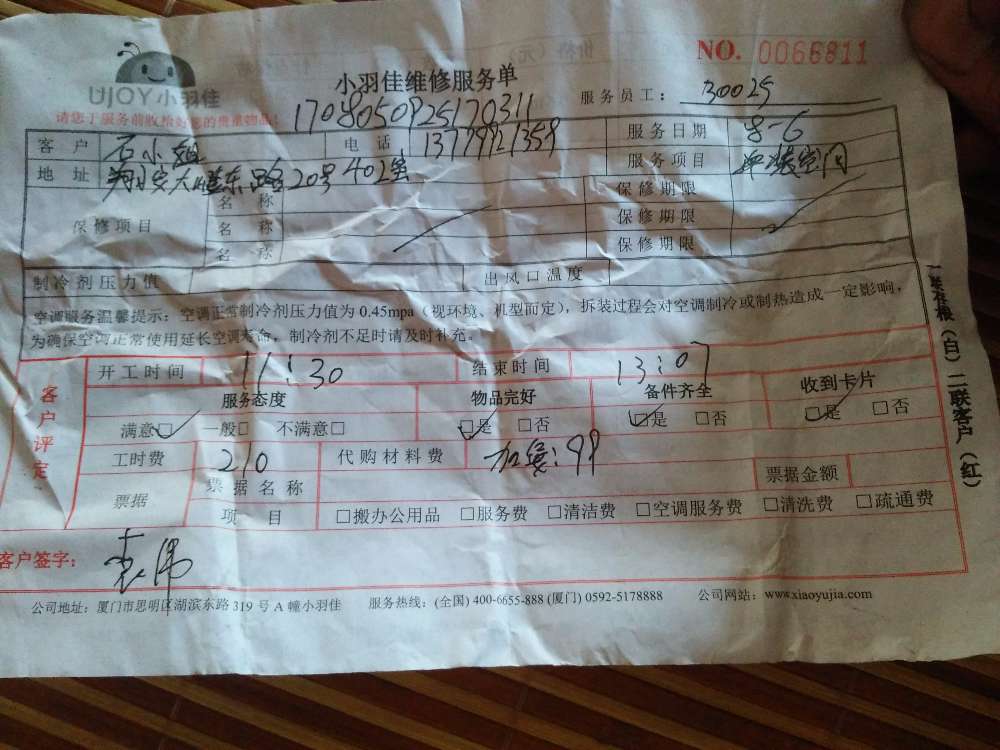 NO. 0066811
UJOY小羽佳
小羽佳维修服务单
服务员工： 30025
请您于服务前收检好您的贵重物品！
1708050925170311
客户 石小姐 电话 服务日期 8-6
地址 20号402室 服务项目
保修项目 名称 保修期限
名称 保修期限
名称 保修期限
制冷剂压力值 出风口温度
空调服务温馨提示：空调正常制冷剂压力值为 0.45mpa（视环境、机型而定），拆装过程会对空调制冷或制热造成一定影响，
为确保空调正常使用延长空调寿命，制冷剂不足时请及时补充。
开工时间 11:30 结束时间 13:07
客户评定
服务态度 物品完好 备件齐全 收到卡片
满意□ 一般□ 不满意□ □是 □否 □是 □否 □是 □否
工时费 210 代购材料费 :99
票据 票据名称 票据金额
项目 □搬办公用品 □服务费 □清洁费 □空调服务费 □清洗费 □疏通费
客户签字：
公司地址：厦门市思明区湖滨东路 319 号 A 幢小羽佳 服务热线：(全国) 400-6655-888 (厦门) 0592-5178888 公司网站：www.xiaoyujia.com
一联存根（白）二联客户（红）